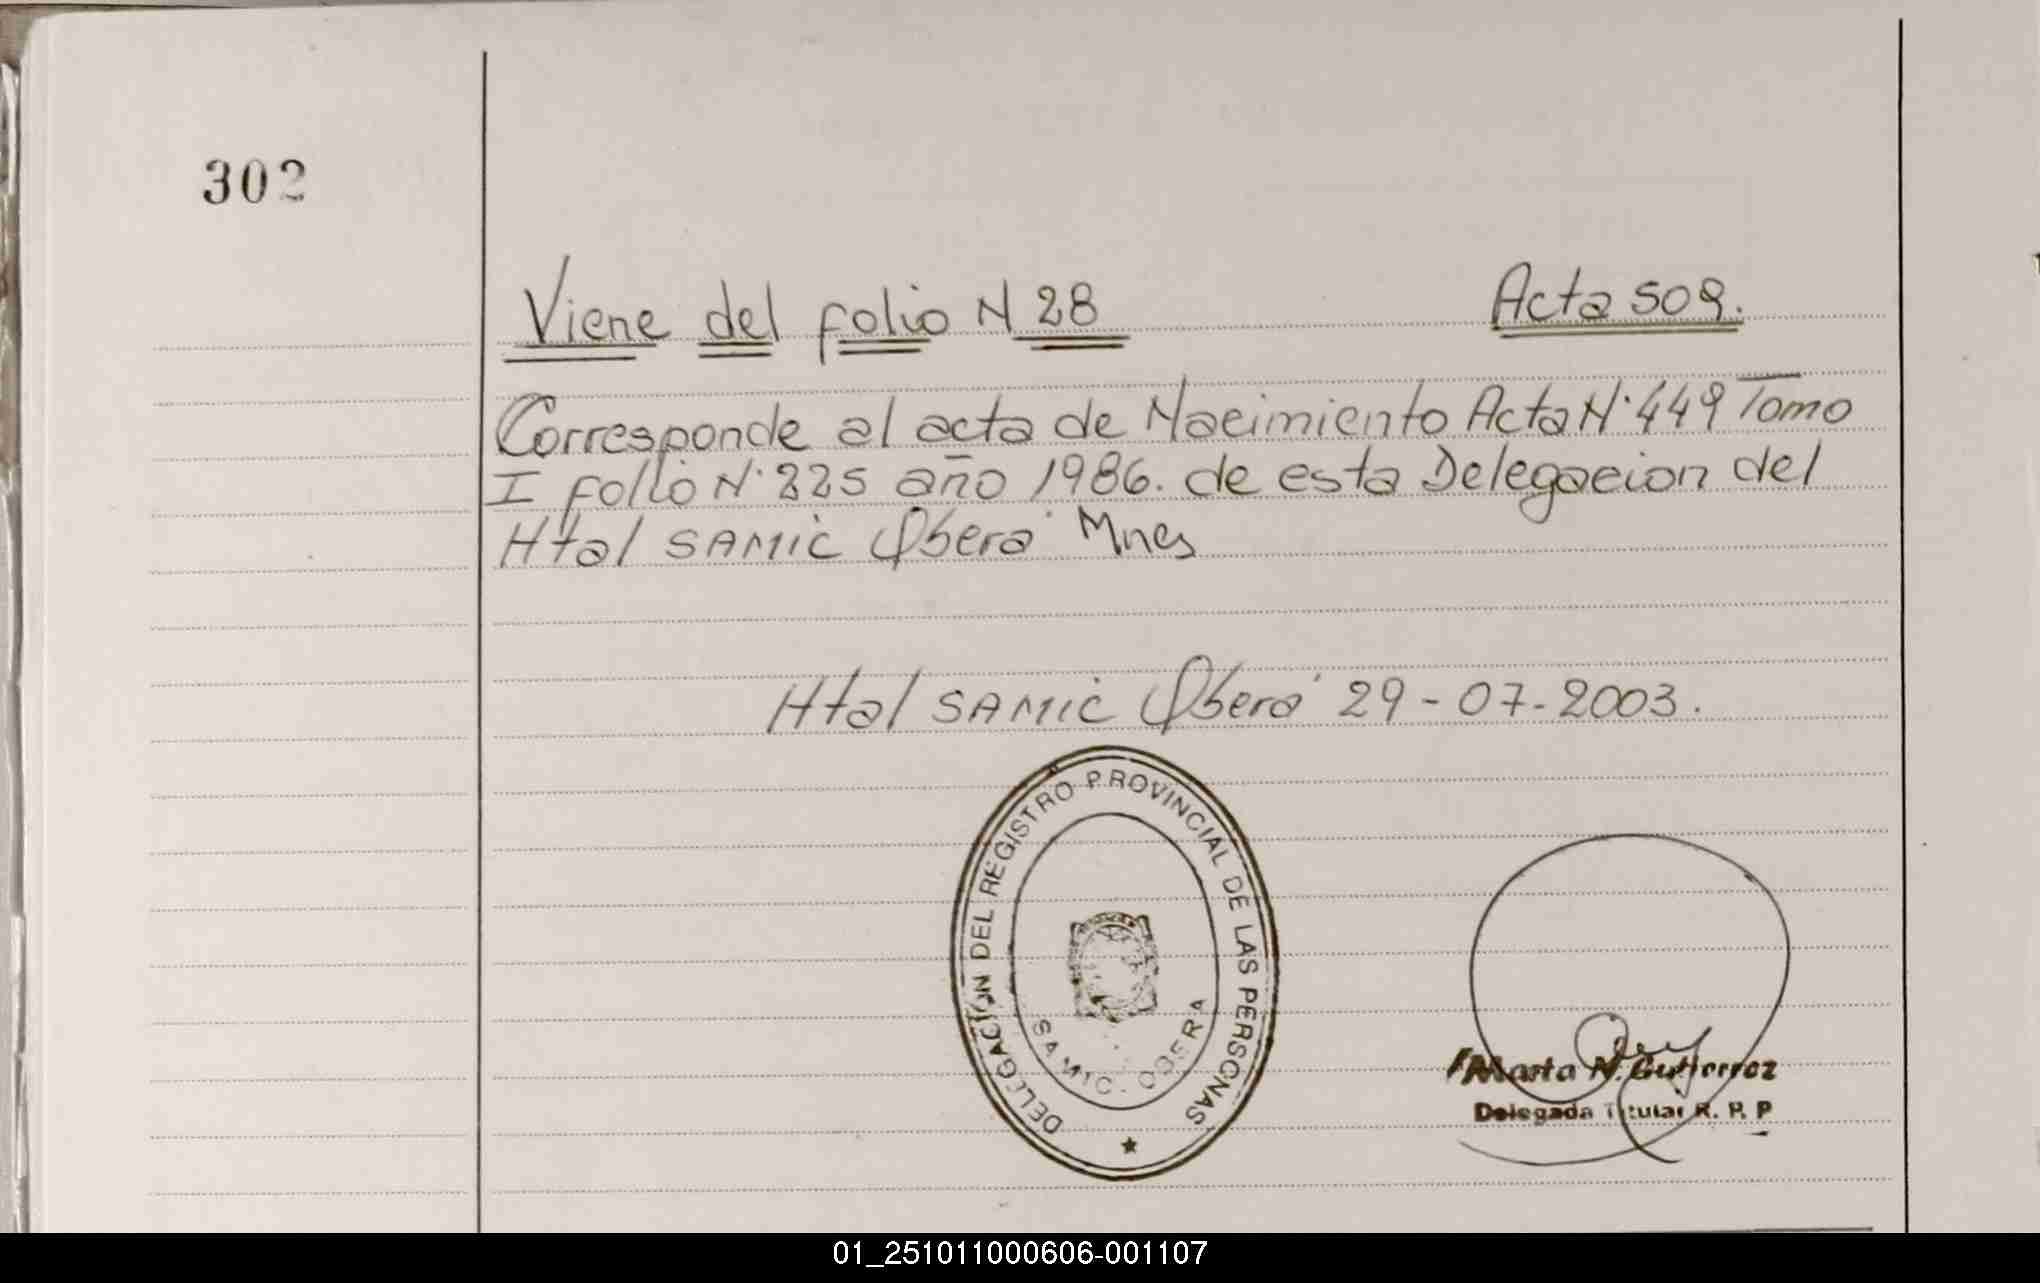 302
Viene del folio N 28
Acta 509.
Corresponde al acta de Nacimiento Acta N. 449 Tomo
I folio N. 225 año 1986. de esta Delegacion del
Htal SAMIC Oberá Mnes
Htal SAMIC Oberá 29-07-2003.
DELEGACIÓN DEL REGISTRO PROVINCIAL DE LAS PERSONAS
SAMIC. OBERA
Marta N. Gutierrez
Delegada Titular R. P. P
01_251011000606-001107